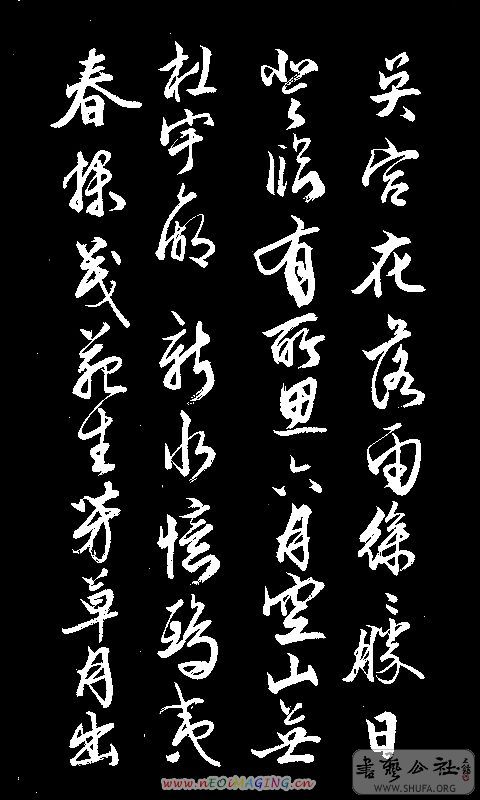 吴宫花落雨絲〻勝日
登臨有所思六月空山無
杜宇五湖新水憶鴟夷
春深茂苑生芳草月出
www.nEOiMAGING.cn
書藝公社
WWW.SHUFA.ORG